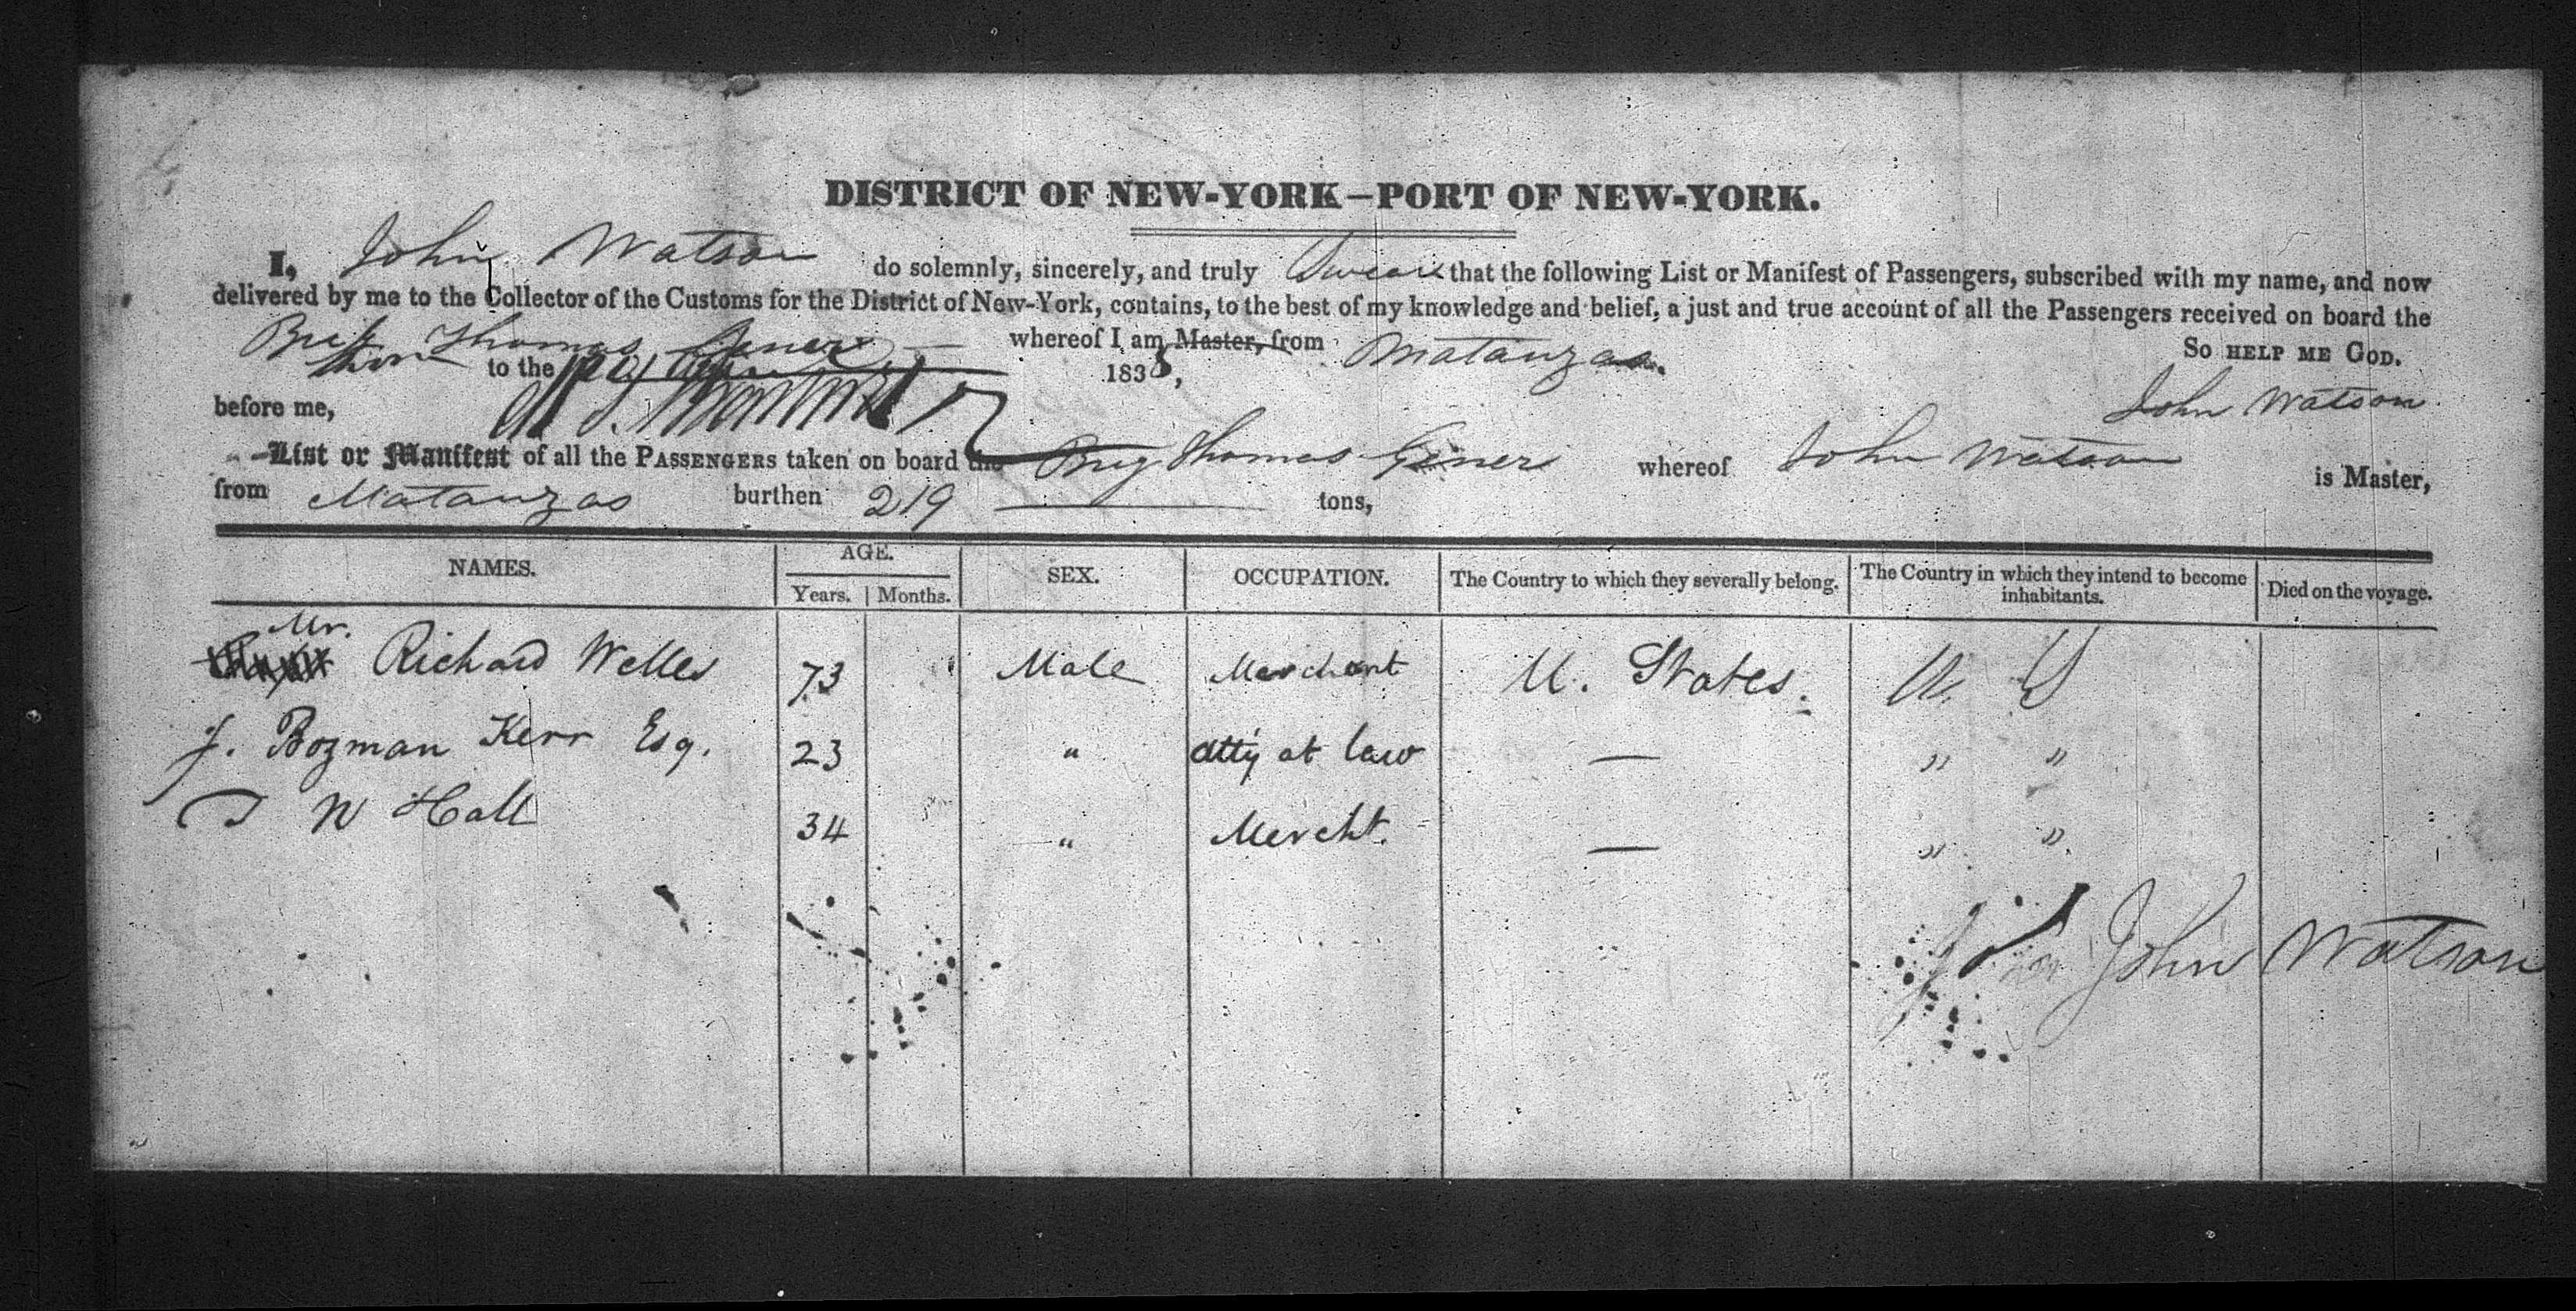 DISTRICT OF NEW-YORK—PORT OF NEW-YORK.
I, John Watson do solemnly, sincerely, and truly Swear that the following List or Manifest of Passengers, subscribed with my name, and now
delivered by me to the Collector of the Customs for the District of New-York, contains, to the best of my knowledge and belief, a just and true account of all the Passengers received on board the
Thomas Gener whereof I am Master, from Matanzas.
So HELP ME GOD.
to the 1838,
John Watson
before me,
List or Manifest of all the PASSENGERS taken on board the Brig Thomas Gener whereof John Watson is Master,
from Matanzas burthen 219 tons,
NAMES. AGE. Years. Months. SEX. OCCUPATION. The Country to which they severally belong. The Country in which they intend to become inhabitants. Died on the voyage.
Mr.
Richard Welles 73 Male Merchant U. States. U. S
J. Bozman Kerr Esq. 23 " atty at law — " "
W Hall 34 " Mercht. — " "
John Watson